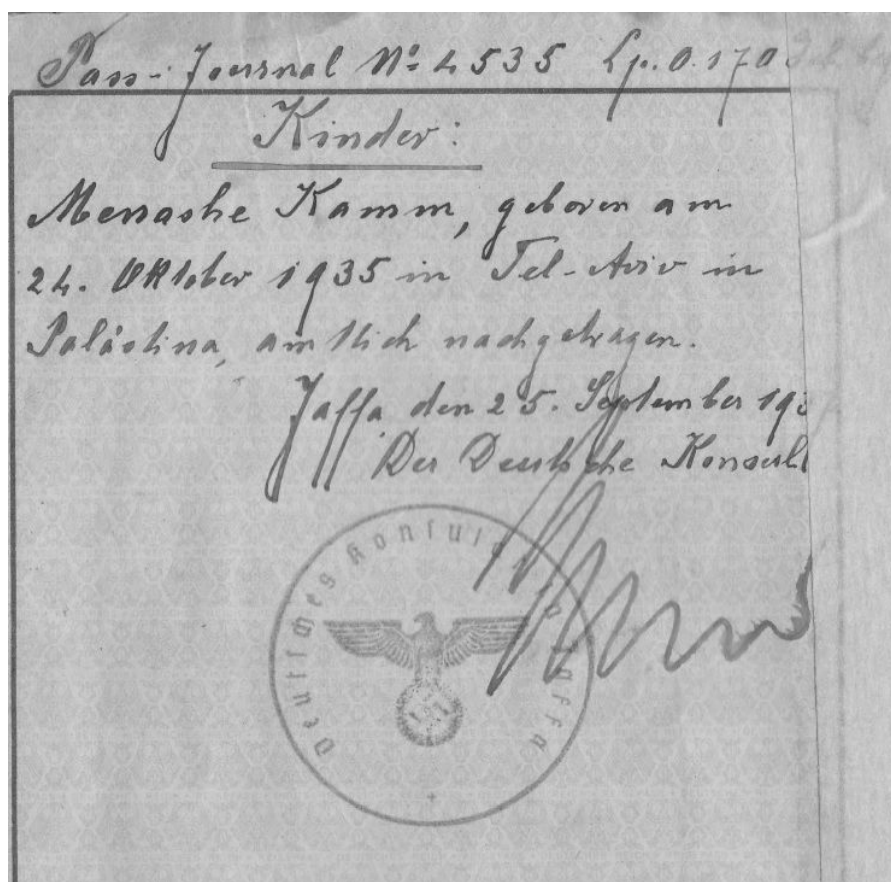 Pass-Journal Nº 4535 Lp. 0.170
Kinder:
Menashe Kamm, geboren am
24. Oktober 1935 in Tel-Aviv in
Palästina, amtlich nachgetragen.
Jaffa den 25. September 193
Der Deutsche Konsul
Deutsches Konsulat in Jaffa